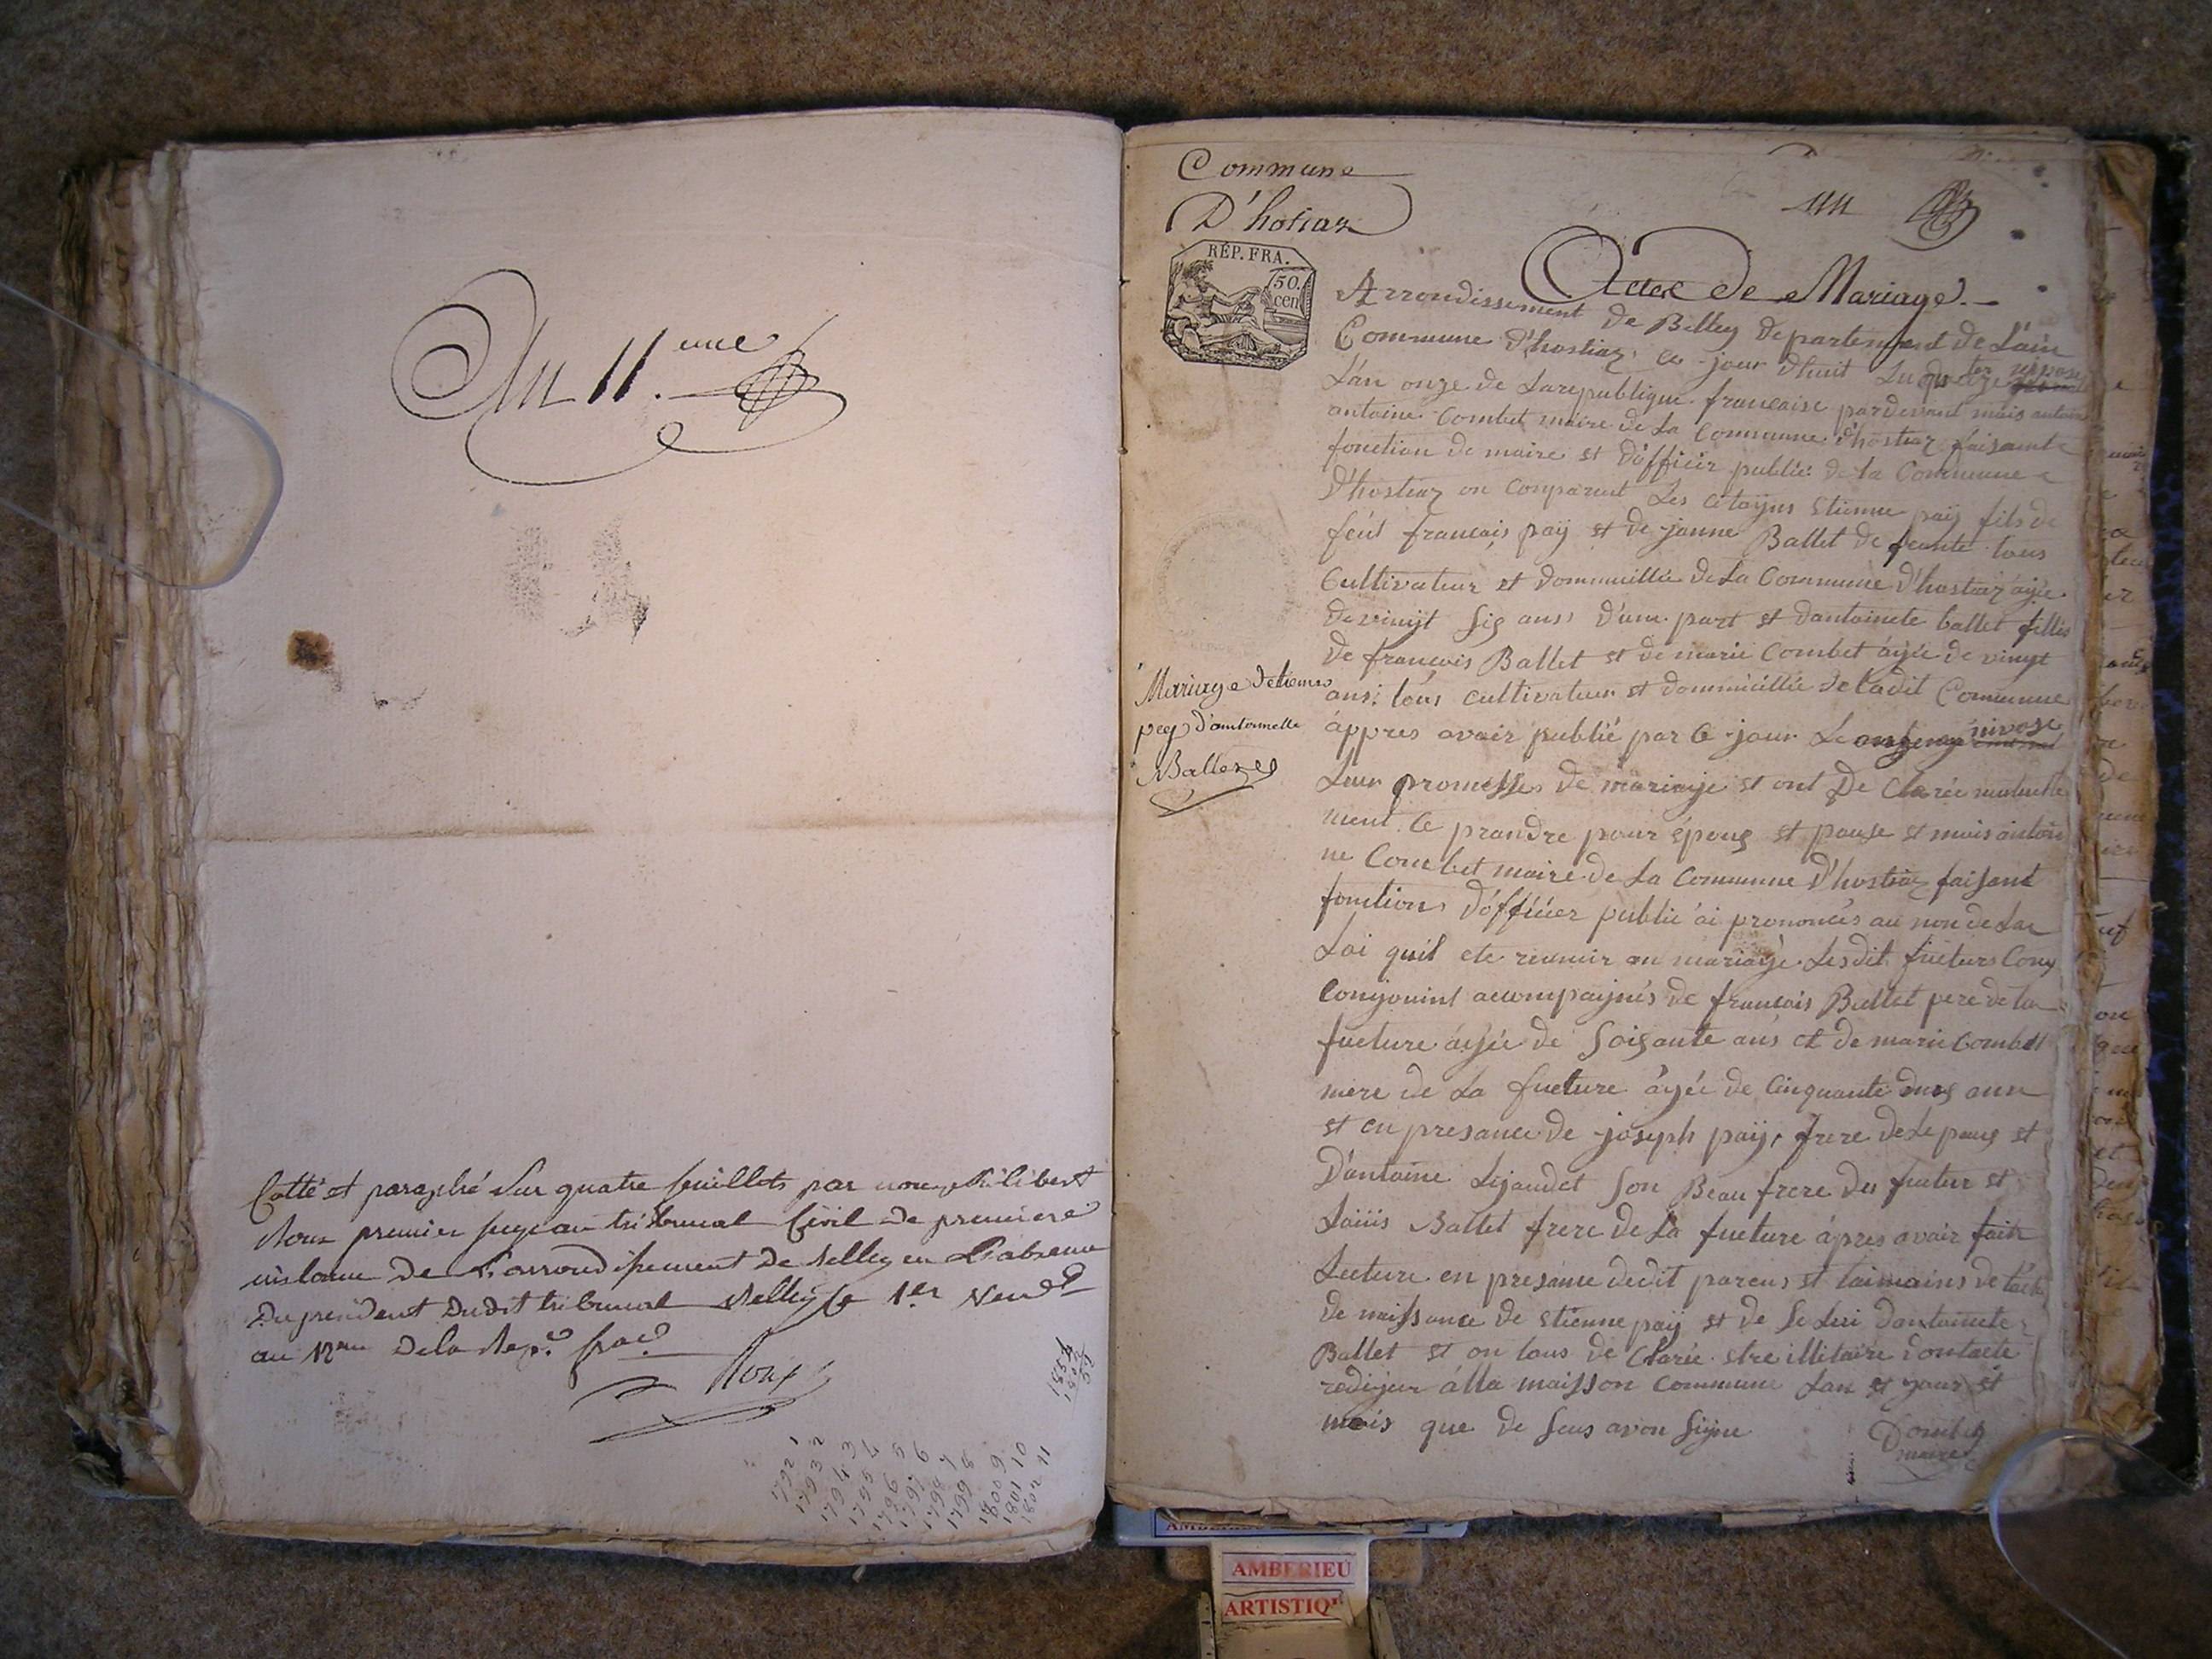 An 11.eme
Cotté et paraphé Sur quatre feuillets par nous Philibert
Roux premier juge au tribunal Civil de premiere
instance de L'arrondissement de Belley en L'absence
Du president Dudit tribunal Belley le 1er Vend.re
an 11me De la Rep.e fra.e
Roux
1854
1802
52
1792 1
1793 2
1794 3
1795 4
1796 5
1797 6
1798 7
1799 8
1800 9
1801 10
1802 11
Commune
D'hosiaz
RÉP. FRA.
50.
cen
Acte De Mariage.
Arrondissement De Belley Departement de L'ain
Commune D'hostiaz ce jour dhuit
L'an onze de Larepublique francaise pardevant mois
antoine Combet maire de La Commune d'hostiaz faisant
fonction de maire et D'officier publie de la Commune
D'hostiaz on Conparut Les Citoyns Etienne paÿ fils de
feut francais paÿ et de janne Ballet De tous
Cultivateur et dommicillie de La Commune D'hostiaz agée
de vinyt Sig ans D'une part et dantoinete ballet fillis
De françois Ballet et de marie Combet ágée de vinyt
ans. tous cultivateur et dommicillie de ladit Commune
áppres avair publié par Ce jour Le nivose
Leur promesses De mariaje et ont De Clarée mutuelle
ment Ce prandre pour époug et pouse et mois antoi
ne Combet maire de La Commune D'hostiaz faisant
fontion D'officier publie ai prononcés au non de La
Loi quil ete reunir an mariaje Lesdit fueturs Cony
Conyouint accompaynés de francais Ballet pere de la
fueture agée de Soisante ans et de marie Combet
mere de La fueture ágée de Cinquante ann
et en presance de joseph paÿ, frere de Le poug et
D'antoine Lijaudet Son Beau frere du fuetur et
Laiiis Ballet frere de La fueture ápres avair fait
Lecture en presance dedit parens et taimains de
de naissance de Etienne paÿ et de Se Lui Dantoinete
Ballet et on tous de Clarée etre illitaire dontacte
redijer álla maisson Commune Lan et your et
mois que de Seus avon Signe
Combet
maire
Mariage detienne
pey D'antoinette
Ballet
AMBERIEU
ARTISTIQ